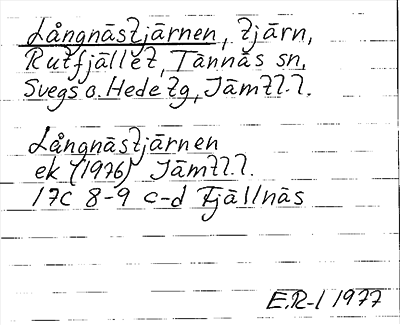 Långnästjärnen, tjärn,
Rutfjället, Tännäs sn,
Svegs o. Hede tg, Jämtl.l.
Långnästjärnen
ek (1976) Jämtl.l.
17C 8-9 c-d Fjällnäs
E.R-l 1977